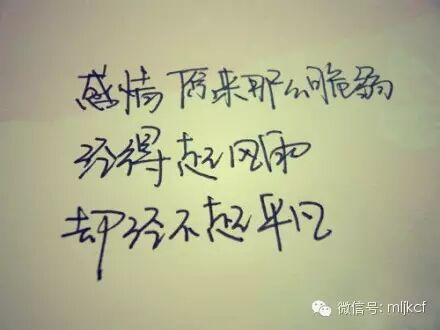 感情原来那么脆弱
经得起风雨
却经不起平凡
微信号: mljkcf